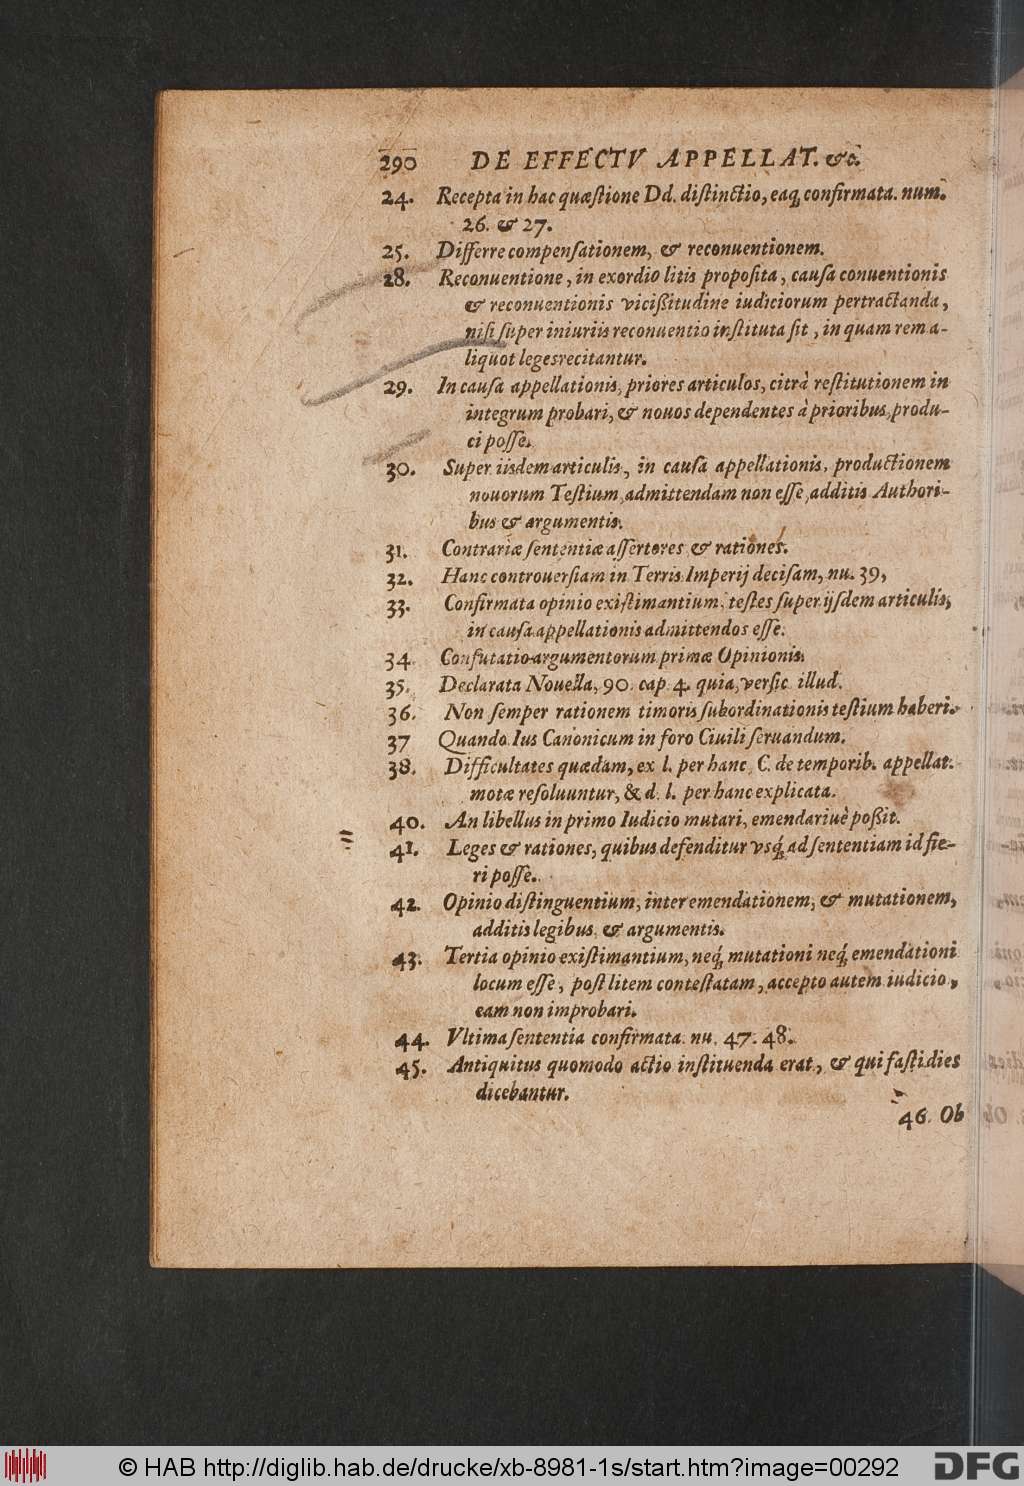 290 DE EFFECTV APPELLAT. &c.
24. Recepta in hac quæſtione Dd. diſtinctio, eaq́; confirmata. num.
26. & 27.
25. Differre compenſationem, & reconuentionem.
28. Reconuentione, in exordio litis propoſita, cauſa conuentionis
& reconuentionis vicißitudine iudiciorum pertractanda,
niſi ſuper iniuriis reconuentio inſtituta ſit, in quam rem a-
liquot leges recitantur.
29. In cauſa appellationis, priores articulos, citrà reſtitutionem in
integrum probari, & nouos dependentes à prioribus, produ-
ci poſſe.
30. Super iisdem articulis, in cauſa appellationis, productionem
nouorum Teſtium, admittendam non eſſe, additis Authori-
bus & argumentis.
31. Contrariæ ſententiæ aſſertores & rationes.
32. Hanc controuerſiam in Terris Imperij deciſam, nu. 39,
33. Confirmata opinio exiſtimantium, teſtes ſuper ijſdem articulis,
in cauſa appellationis admittendos eſſe.
34. Confutatio argumentorum primæ Opinionis.
35. Declarata Nouella, 90. cap. 4. quia, verſic. illud.
36. Non ſemper rationem timoris ſubordinationis teſtium haberi.
37 Quando Ius Canonicum in foro Ciuili ſeruandum.
38. Difficultates quædam, ex l. per hanc, C. de temporib. appellat.
motæ reſoluuntur, & d. l. per hanc explicata.
40. An libellus in primo Iudicio mutari, emendariuè poßit.
41. Leges & rationes, quibus defenditur vsq́; ad ſententiam id fie-
ri poſſe.
42. Opinio diſtinguentium, inter emendationem, & mutationem,
additis legibus & argumentis.
43. Tertia opinio exiſtimantium, neq́; mutationi neq́; emendationi
locum eſſe, poſt litem conteſtatam, accepto autem iudicio,
eam non improbari.
44. Vltima ſententia confirmata. nu. 47. 48.
45. Antiquitus quomodo actio inſtituenda erat, & qui faſti dies
dicebantur.
46. Ob
© HAB http://diglib.hab.de/drucke/xb-8981-1s/start.htm?image=00292
DFG